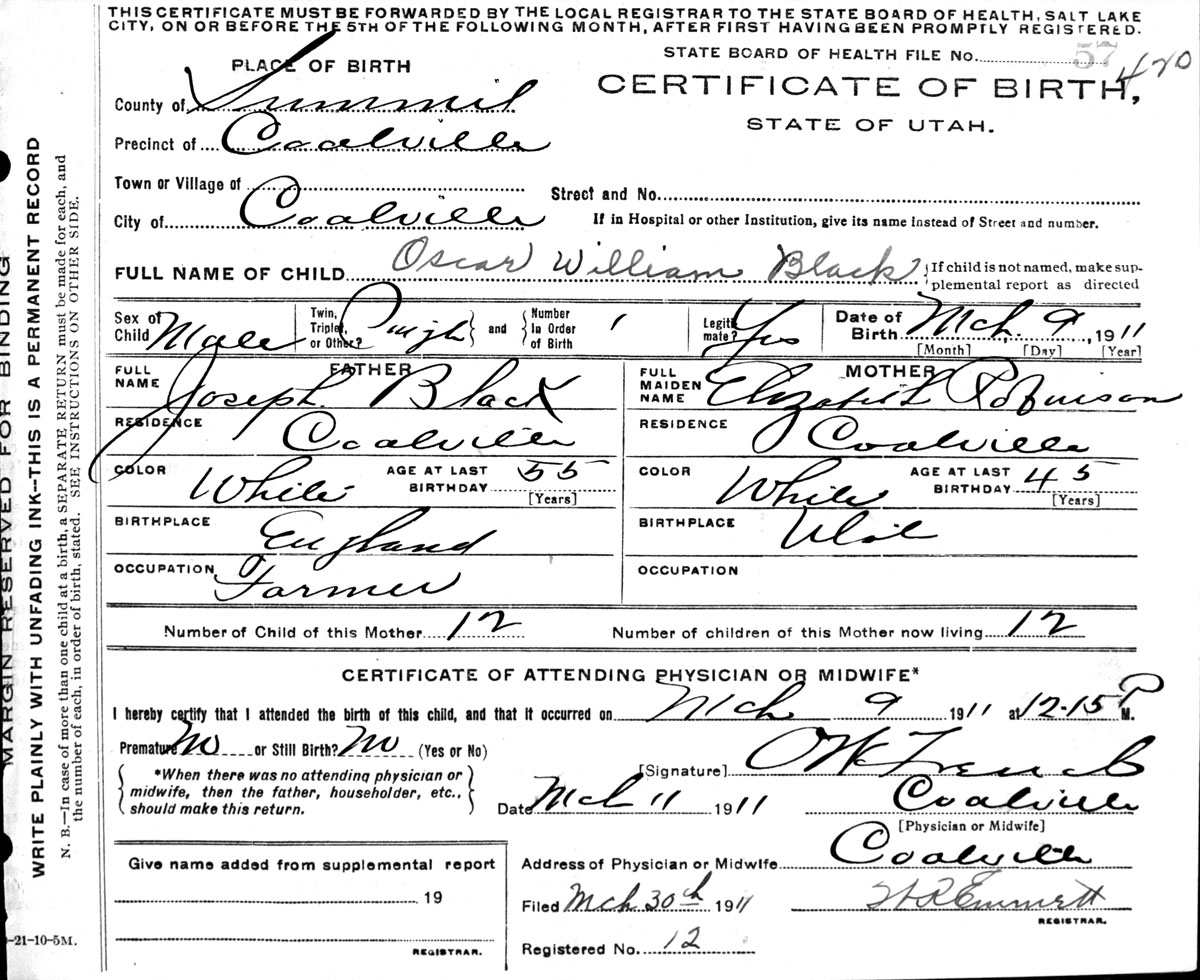 THIS CERTIFICATE MUST BE FORWARDED BY THE LOCAL REGISTRAR TO THE STATE BOARD OF HEALTH, SALT LAKE
CITY, ON OR BEFORE THE 5TH OF THE FOLLOWING MONTH, AFTER FIRST HAVING BEEN PROMPTLY REGISTERED.
STATE BOARD OF HEALTH FILE No. 57 420
PLACE OF BIRTH
CERTIFICATE OF BIRTH,
STATE OF UTAH.
County of Summit
Precinct of Coalville
Town or Village of
Street and No.
City of Coalville
If in Hospital or other Institution, give its name instead of Street and number.
FULL NAME OF CHILD Oscar William Black {If child is not named, make sup-
plemental report as directed
Sex of Child Male
Twin, Triplet, or Other? } and { Number In Order of Birth 1
Legiti mate? Yes
Date of Birth Mch. 9, 1911
[Month] [Day] [Year]
FATHER
FULL NAME Joseph Black
RESIDENCE Coalville
COLOR White AGE AT LAST BIRTHDAY 55
[Years]
BIRTHPLACE England
OCCUPATION Farmer
MOTHER
FULL MAIDEN NAME Elizabeth Robinson
RESIDENCE Coalville
COLOR White AGE AT LAST BIRTHDAY 45
[Years]
BIRTHPLACE Utah
OCCUPATION
Number of Child of this Mother 12 Number of children of this Mother now living 12
CERTIFICATE OF ATTENDING PHYSICIAN OR MIDWIFE*
I hereby certify that I attended the birth of this child, and that it occurred on Mch 9 1911 at 12.15 P M.
Premature No or Still Birth? No (Yes or No)
{ *When there was no attending physician or
midwife, then the father, householder, etc.,
should make this return. }
[Signature] French
Date Mch 11 1911 Coalville
[Physician or Midwife]
Address of Physician or Midwife Coalville
Filed Mch 30th 1911 Emmett
REGISTRAR.
Registered No. 12
Give name added from supplemental report
19
REGISTRAR.
MARGIN RESERVED FOR BINDING
WRITE PLAINLY WITH UNFADING INK—THIS IS A PERMANENT RECORD
N. B.—In case of more than one child at a birth, a SEPARATE RETURN must be made for each, and
the number of each, in order of birth, stated. SEE INSTRUCTIONS ON OTHER SIDE.
-21-10-5M.